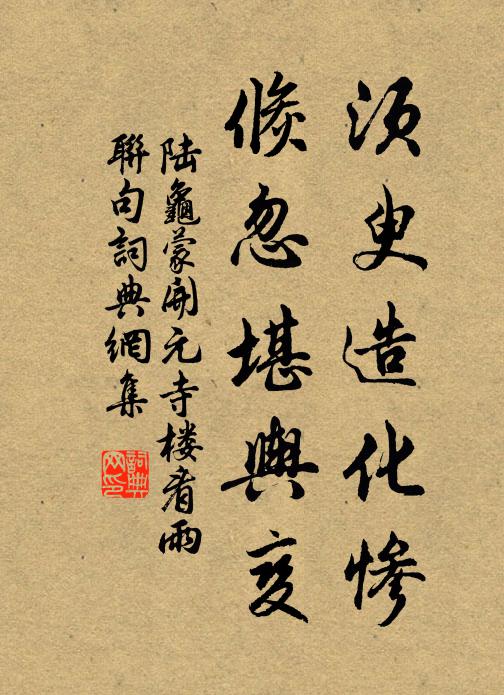 須臾造化慘
倏忽堪輿變
陸龜蒙開元寺楼看雨
聯句詞典網集
詞典
网印